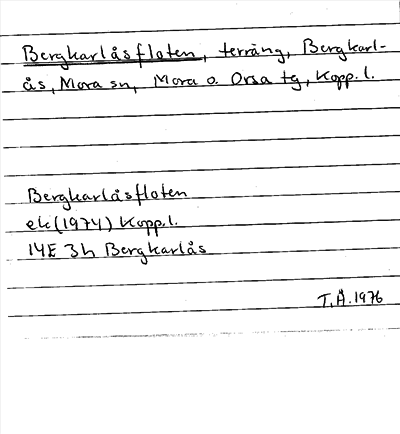 Bergkarlåsfloten, terräng, Bergkarl-
ås, Mora sn, Mora o. Orsa tg, Kopp. l.
Bergkarlåsfloten
ek (1974) Kopp. l.
14E 3h Bergkarlås
T.Å. 1976